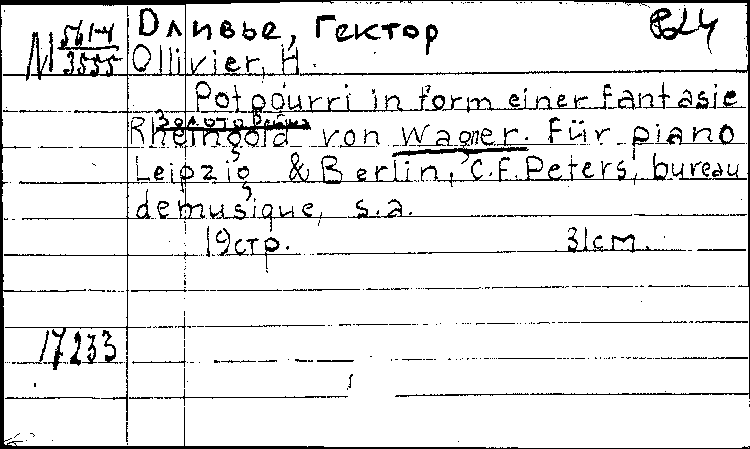 Оливье, Гектор
М 561-4
3555
Ollivier, H.
Potpourri in form einer fantasie
Золото Рейна
Rheingold von Wagner. Für piano
Leipzig & Berlin, C.F.Peters, bureau
demusique, s.a.
19стр. 31см.
17233